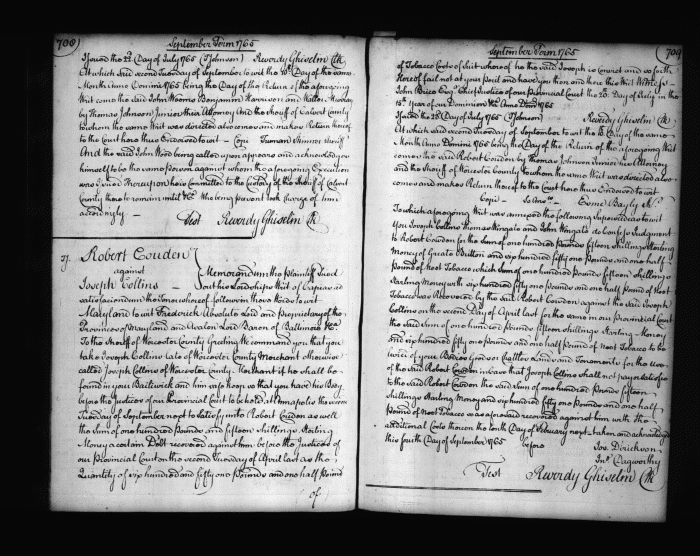 700
September Term 1765
Issued the 22d Day of July 1765 (T Johnson) Reverdy Ghiselin Clk
At which said second Tuesday of September to wit the 10th Day of the same
Month Anno Domini 1765 being the Day of the Return of the aforegoing
Writ came the said John Weems Benjamin Harrison and Walter
by Thomas Johnson Junior their Attorney And the Sheriff of Calvert County
to whom the same Writ was directed also comes and makes Return thereof
to the Court here thus Endorsed to wit - Cepi Truman Skinner Sheriff
And the said John being called upon appears and acknowledges
himself to be the same Person against whom the aforegoing Execution
was issued Thereupon he is Committed to the Custody of the Sheriff of Calvert
County there to remain until &c he being present took charge of him
accordingly -
Test Reverdy Ghiselin Clk
37. Robert Couden
against
Joseph Collins
Memorandum the Plaintiff Sued
out his Lordship's Writ of Capias ad
satisfaciendum the Tenor whereof follows in these Words to wit
Maryland to wit Frederick Absolute Lord and Proprietary of the
Provinces of Maryland and Avalon Lord Baron of Baltimore &c
To the Sheriff of Worcester County Greeting We command you that you
take Joseph Collins late of Worcester County Merchant otherwise
called Joseph Collins of Worcester County Merchant if he shall be
found in your Bailiwick and him safe keep so that you have his Body
before the Justices of our Provincial Court to be held at Annapolis the second
Tuesday of September next to satisfy unto Robert Couden as well
the Sum of one hundred Pounds and fifteen Shillings Sterling
Money a certain Debt recovered against him before the Justices of
our Provincial Court on the second Tuesday of April last as the
Quantity of six hundred and fifty one Pounds and one half Pound
of
September Term 1765
709
of Tobacco Costs of Suit whereof he the said Joseph is Convict and so forth
Hereof fail not at your Peril and have you then and there this Writ Witness
John Brice Esqr. Chief Justice of our Provincial Court the 20 Day of July in the
15th Year of our Dominion &c Anno Domini 1765
Issued the 28 Day of July 1765 (T Johnson) Reverdy Ghiselin Clk
At which said second Tuesday of September to wit the 10 Day of the same
Month Anno Domini 1765 being the Day of the Return of the aforegoing Writ
comes the said Robert Couden by Thomas Johnson Junior his Attorney
and the Sheriff of Worcester County to whom the same Writ was directed also
comes and makes Return thereof to the Court here thus Endorsed to wit
Cepi - So Answers - Esme Bayly Shf
To which aforegoing Writ was annexed the following Supersedeas to wit
You Joseph Collins Thomas Wingate and John Wingate do Confess Judgment
to Robert Couden for the Sum of one hundred Pounds fifteen Shillings Sterling
Money of Great Britain and six hundred fifty one Pounds and one half
Pound of Neet Tobacco which Sum of one hundred Pounds fifteen Shillings
Sterling Money with six hundred fifty one Pounds and one half Pound of Neet
Tobacco was Recovered by the said Robert Couden against the said Joseph
Collins on the second Day of April last for the same in our Provincial Court
the said Sum of one hundred Pounds fifteen Shillings Sterling Money
and six hundred fifty one Pounds and one half Pound of Neet Tobacco to be
levied of your Bodies Goods or Chattles Lands and Tenements for the use
of the said Robert Couden in Case that Joseph Collins shall not pay and satisfie
to the said Robert Couden the said Sum of one hundred Pounds fifteen
Shillings Sterling Money and six hundred fifty one Pounds and one half
Pound of Neet Tobacco was aforesaid recovered against him with the
additional Costs thereon the tenth Day of February next taken and acknowledged
this fourth Day of September 1765 before
Jos. Dirickson
Jno. Dagworthy
Test Reverdy Ghiselin Clk